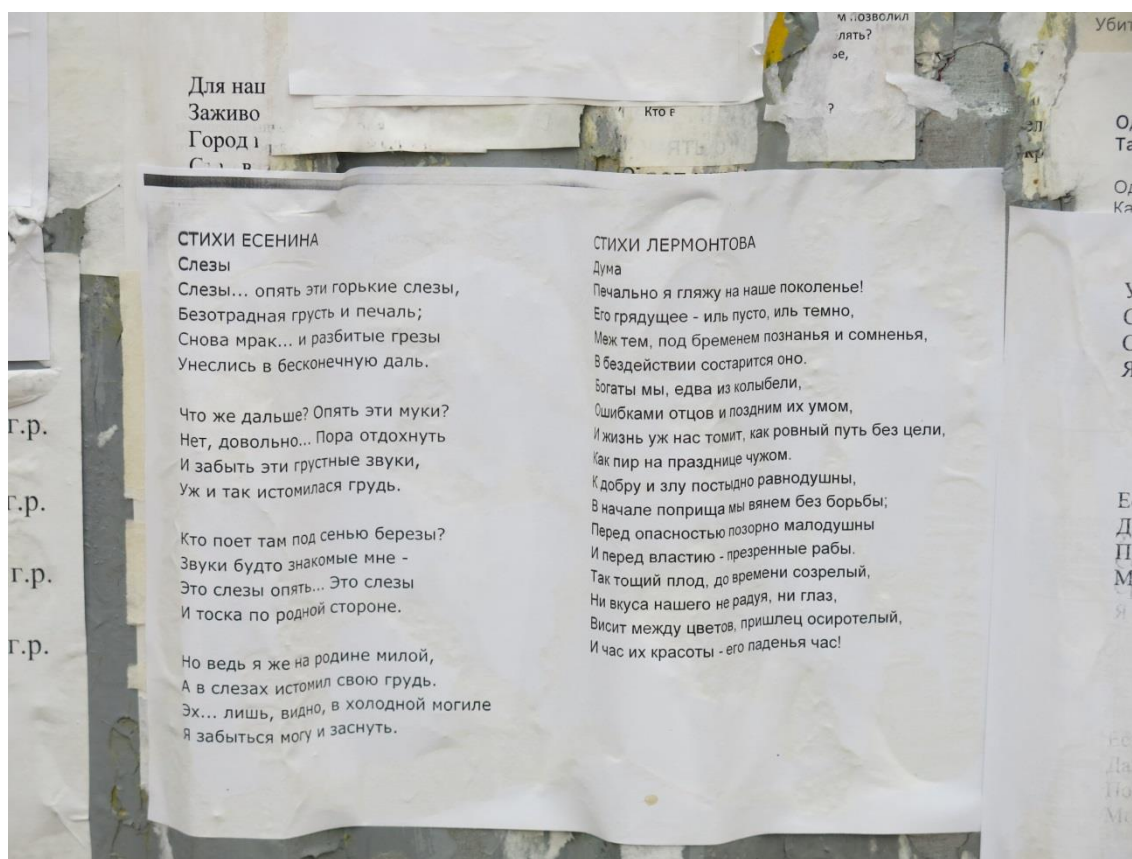 м позволил
лять?
ье,
?
Для наш
Заживо
Город
Кто в
Убит
СТИХИ ЕСЕНИНА
Слезы
Слезы... опять эти горькие слезы,
Безотрадная грусть и печаль;
Снова мрак... и разбитые грезы
Унеслись в бесконечную даль.
Что же дальше? Опять эти муки?
Нет, довольно... Пора отдохнуть
И забыть эти грустные звуки,
Уж и так истомилася грудь.
Кто поет там под сенью березы?
Звуки будто знакомые мне -
Это слезы опять... Это слезы
И тоска по родной стороне.
Но ведь я же на родине милой,
А в слезах истомил свою грудь.
Эх... лишь, видно, в холодной могиле
Я забыться могу и заснуть.
СТИХИ ЛЕРМОНТОВА
Дума
Печально я гляжу на наше поколенье!
Его грядущее - иль пусто, иль темно,
Меж тем, под бременем познанья и сомненья,
В бездействии состарится оно.
Богаты мы, едва из колыбели,
Ошибками отцов и поздним их умом,
И жизнь уж нас томит, как ровный путь без цели,
Как пир на празднице чужом.
К добру и злу постыдно равнодушны,
В начале поприща мы вянем без борьбы;
Перед опасностью позорно малодушны
И перед властию - презренные рабы.
Так тощий плод, до времени созрелый,
Ни вкуса нашего не радуя, ни глаз,
Висит между цветов, пришлец осиротелый,
И час их красоты - его паденья час!
г.р.
г.р.
г.р.
г.р.